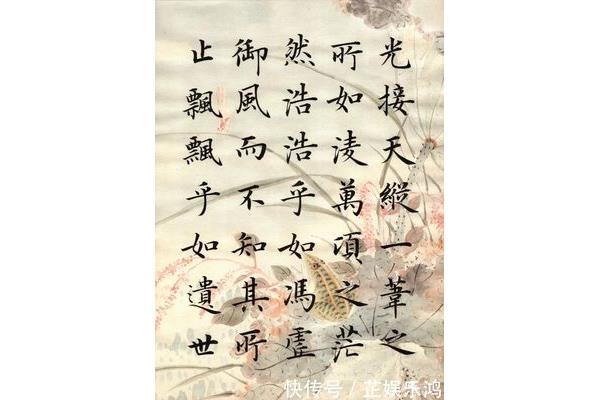 光接天縱一葦之
所如淩萬頃之茫
然浩浩乎如馮虛
御風而不知其所
止飄飄乎如遺世
快传号/芷娱乐鸿